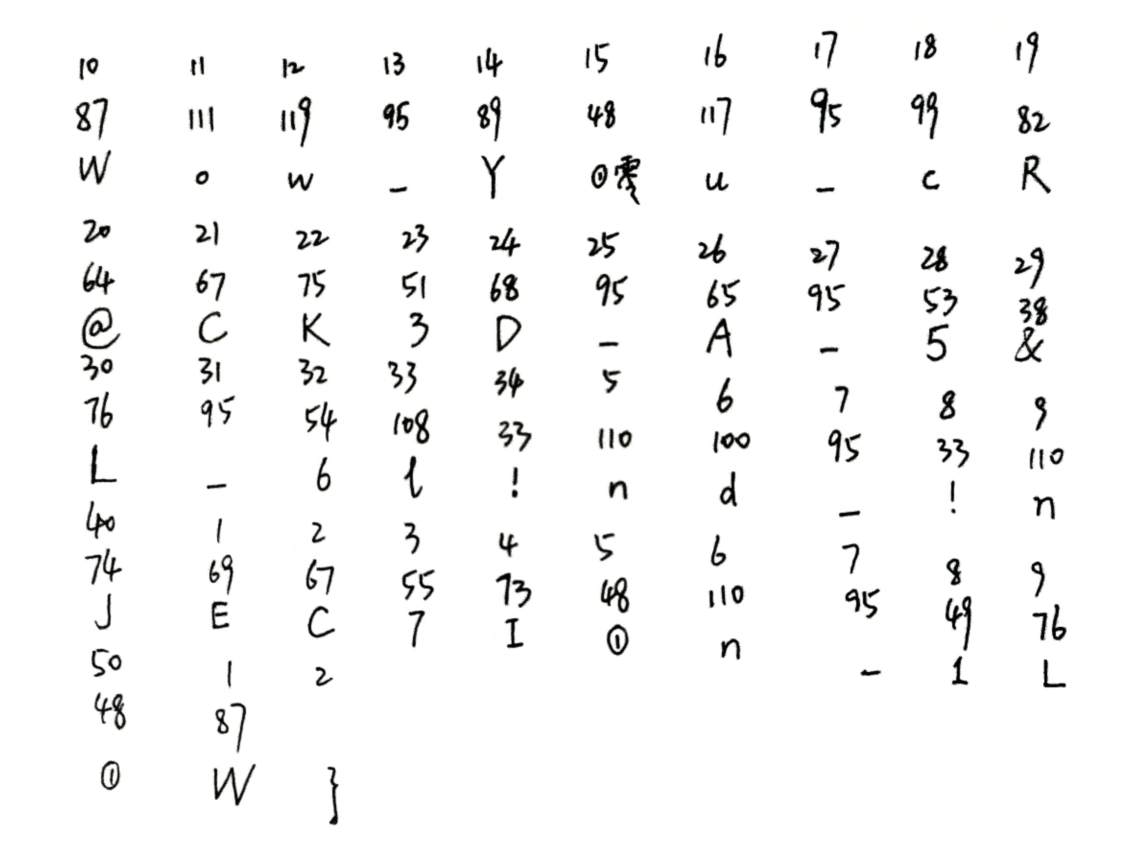 10 11 12 13 14 15 16 17 18 19
87 111 119 95 89 48 117 95 99 82
W o w _ Y ① 零 u _ c R
20 21 22 23 24 25 26 27 28 29
64 67 75 51 68 95 65 95 53 38
@ C K 3 D _ A _ 5 &
30 31 32 33 34 5 6 7 8 9
76 95 54 108 33 110 100 95 33 110
L _ 6 l ! n d _ ! n
40 1 2 3 4 5 6 7 8 9
74 69 67 55 73 48 110 95 49 76
J E C 7 I ① n _ 1 L
50 1 2
48 87
① W }